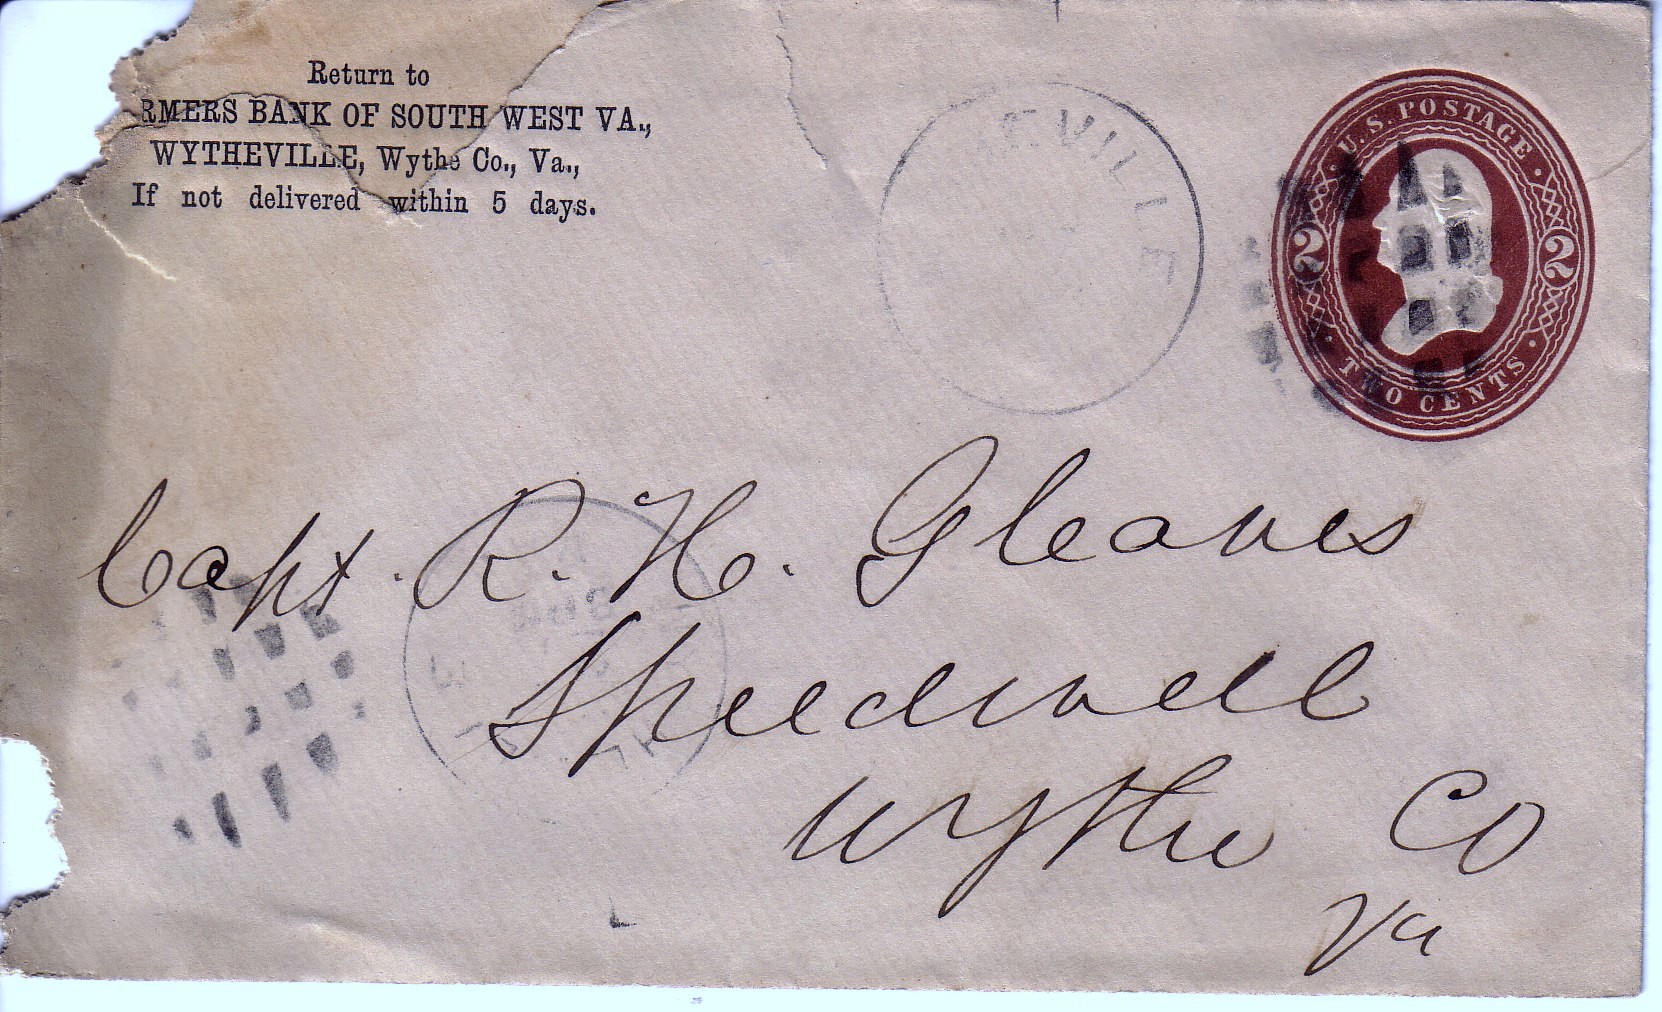 Return to
RMERS BANK OF SOUTH WEST VA.,
WYTHEVILLE, Wythe Co., Va.,
If not delivered within 5 days.
EVILLE
U.S. POSTAGE
2 2
TWO CENTS
Capt. R. H. Gleaves
Speedwell
Wythe Co
Va